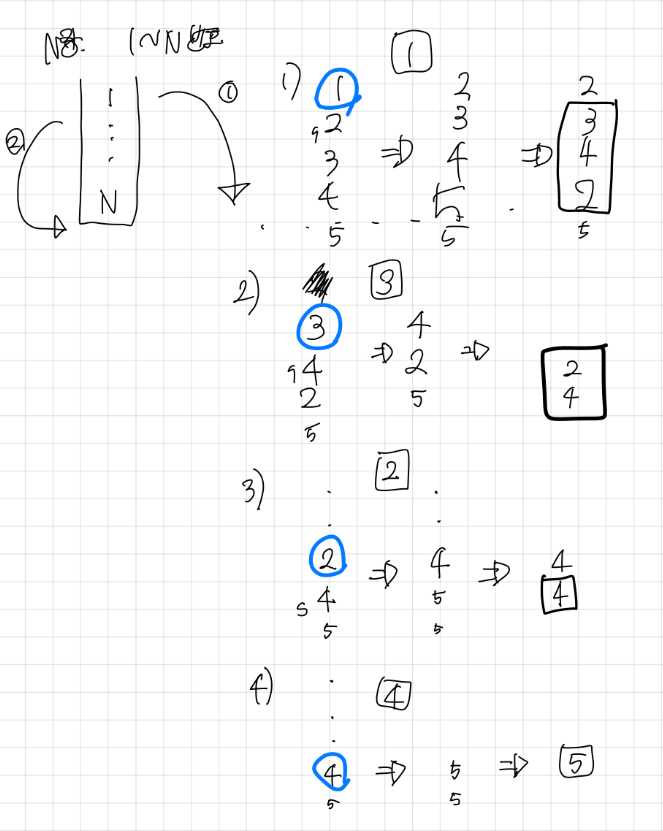 1~N
1
1 ① 1) 1 2 2
② 2 3 3
3 ⇒ 4 ⇒ 4
N 4 5 2
5 5 5
2) 3
3 4
4 ⇒ 2 ⇒ 2
2 5 4
5
3) 2
2 ⇒ 4 ⇒ 4
4 5 4
5 5
4) 4
4 ⇒ 5 ⇒ 5
5 5